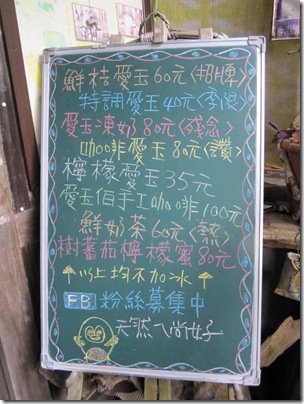 鮮桔愛玉60元<招牌>
特調愛玉40元<季限>
愛玉凍奶80元<殘念>
咖啡愛玉80元<讚>
檸檬愛玉35元
愛玉佰手工咖啡100元
鮮奶茶60元<熱>
樹蕃茄檸檬蜜80元
↑以上均不加冰↑
FB 粉絲募集中
天然ㄟ尚好